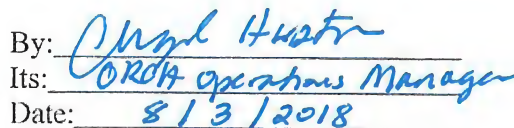 By: Huston
Its: ORCA Operations Manager
Date: 8/3/2018